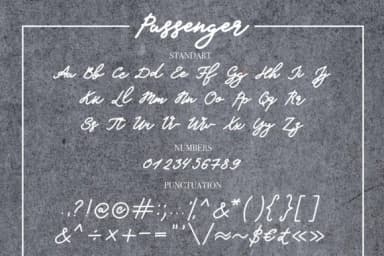 Passenger
STANDART
Aa Bb Cc Dd Ee Ff Gg Hh Ii Jj
Kk Ll Mm Nn Oo Pp Qq Rr
Ss Tt Uu Vv Ww Xx Yy Zz
NUMBERS
0123456789
PUNCTUATION
.,?!@©#:;…¦,^&*(){}[]
&^÷×+–="'\/≈~$€£«»